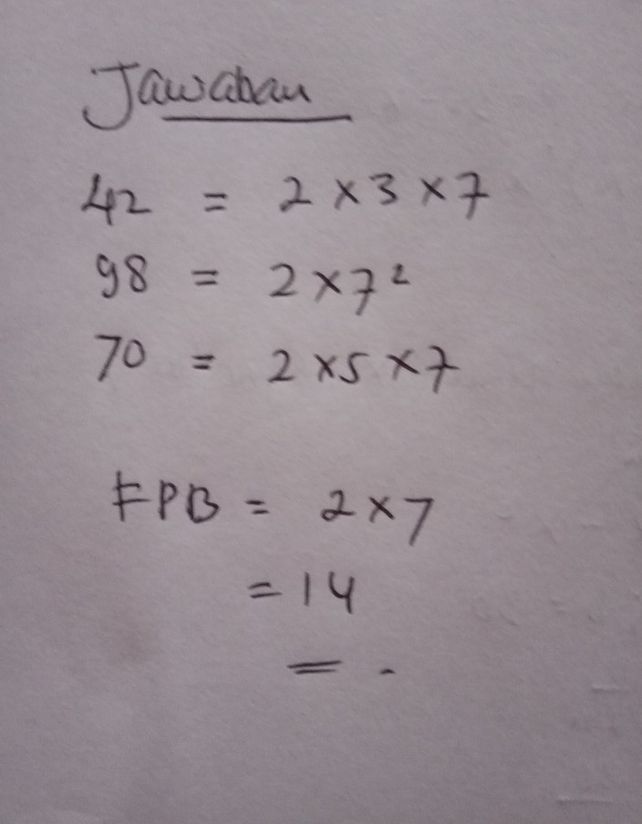 Jawaban
42 = 2 × 3 × 7
98 = 2 × 7²
70 = 2 × 5 × 7
FPB = 2 × 7
= 14